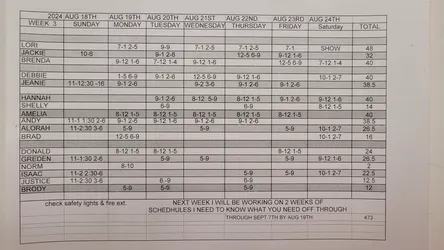 2024 AUG 18TH AUG 19TH AUG 20TH AUG 21ST AUG 22ND AUG 23RD AUG 24TH
WEEK 3 SUNDAY MONDAY TUESDAY WEDNESDAY THURSDAY FRIDAY Saturday TOTAL
LORI 7-1 2-5 9-9 7-1 2-5 7-1 2-5 7-1 SHOW 48
JACKIE 10-8 9-1 2-6 12-5 6-9 9-1 2-6 32
BRENDA 9-12 1-6 7-12 1-4 9-12 1-6 12-5 6-9 7-12 1-4 40
DEBBIE 1-5 6-9 9-1 2-6 12-5 6-9 9-12 1-6 10-1 2-7 40
JEANIE 11-12:30 -16 9-1 2-6 9-2 3-6 9-1 2-6 9-1 2-6 38.5
HANNAH 9-1 2-6 8-12 5-9 8-12 1-5 9-12 1-6 9-12 1-6 40
SHELLY 6-9 6-9 8-12 1-5 14
AMELIA 8-12 1-5 8-12 1-5 8-12 1-5 8-12 1-5 8-12 1-5 40
ANDY 11-1 1:30 2-6 9-12 1-6 9-12 1-6 9-12 1-6 9-12 1-6 38.5
ALORAH 11-2:30 3-6 5-9 5-9 5-9 10-1 2-7 26.5
BRAD 12-5 6-9 10-1 2-7 16
DONALD 8-12 1-5 8-12 1-5 8-12 1-5 24
GREDEN 11-1:30 2-6 5-9 5-9 5-9 9-12 1-6 26.5
NORM 8-10 2
ISAAC 11-2 2:30-6 5-9 5-9 10-1 2-7 22.5
JUSTICE 11-2:30 3-6 6-9 6-9 12.5
BRODY 5-9 5-9 5-9 12
check safety lights & fire ext. NEXT WEEK I WILL BE WORKING ON 2 WEEKS OF
SCHEDHULES I NEED TO KNOW WHAT YOU NEED OFF THROUGH
THROUGH SEPT 7TH BY AUG 19TH 473